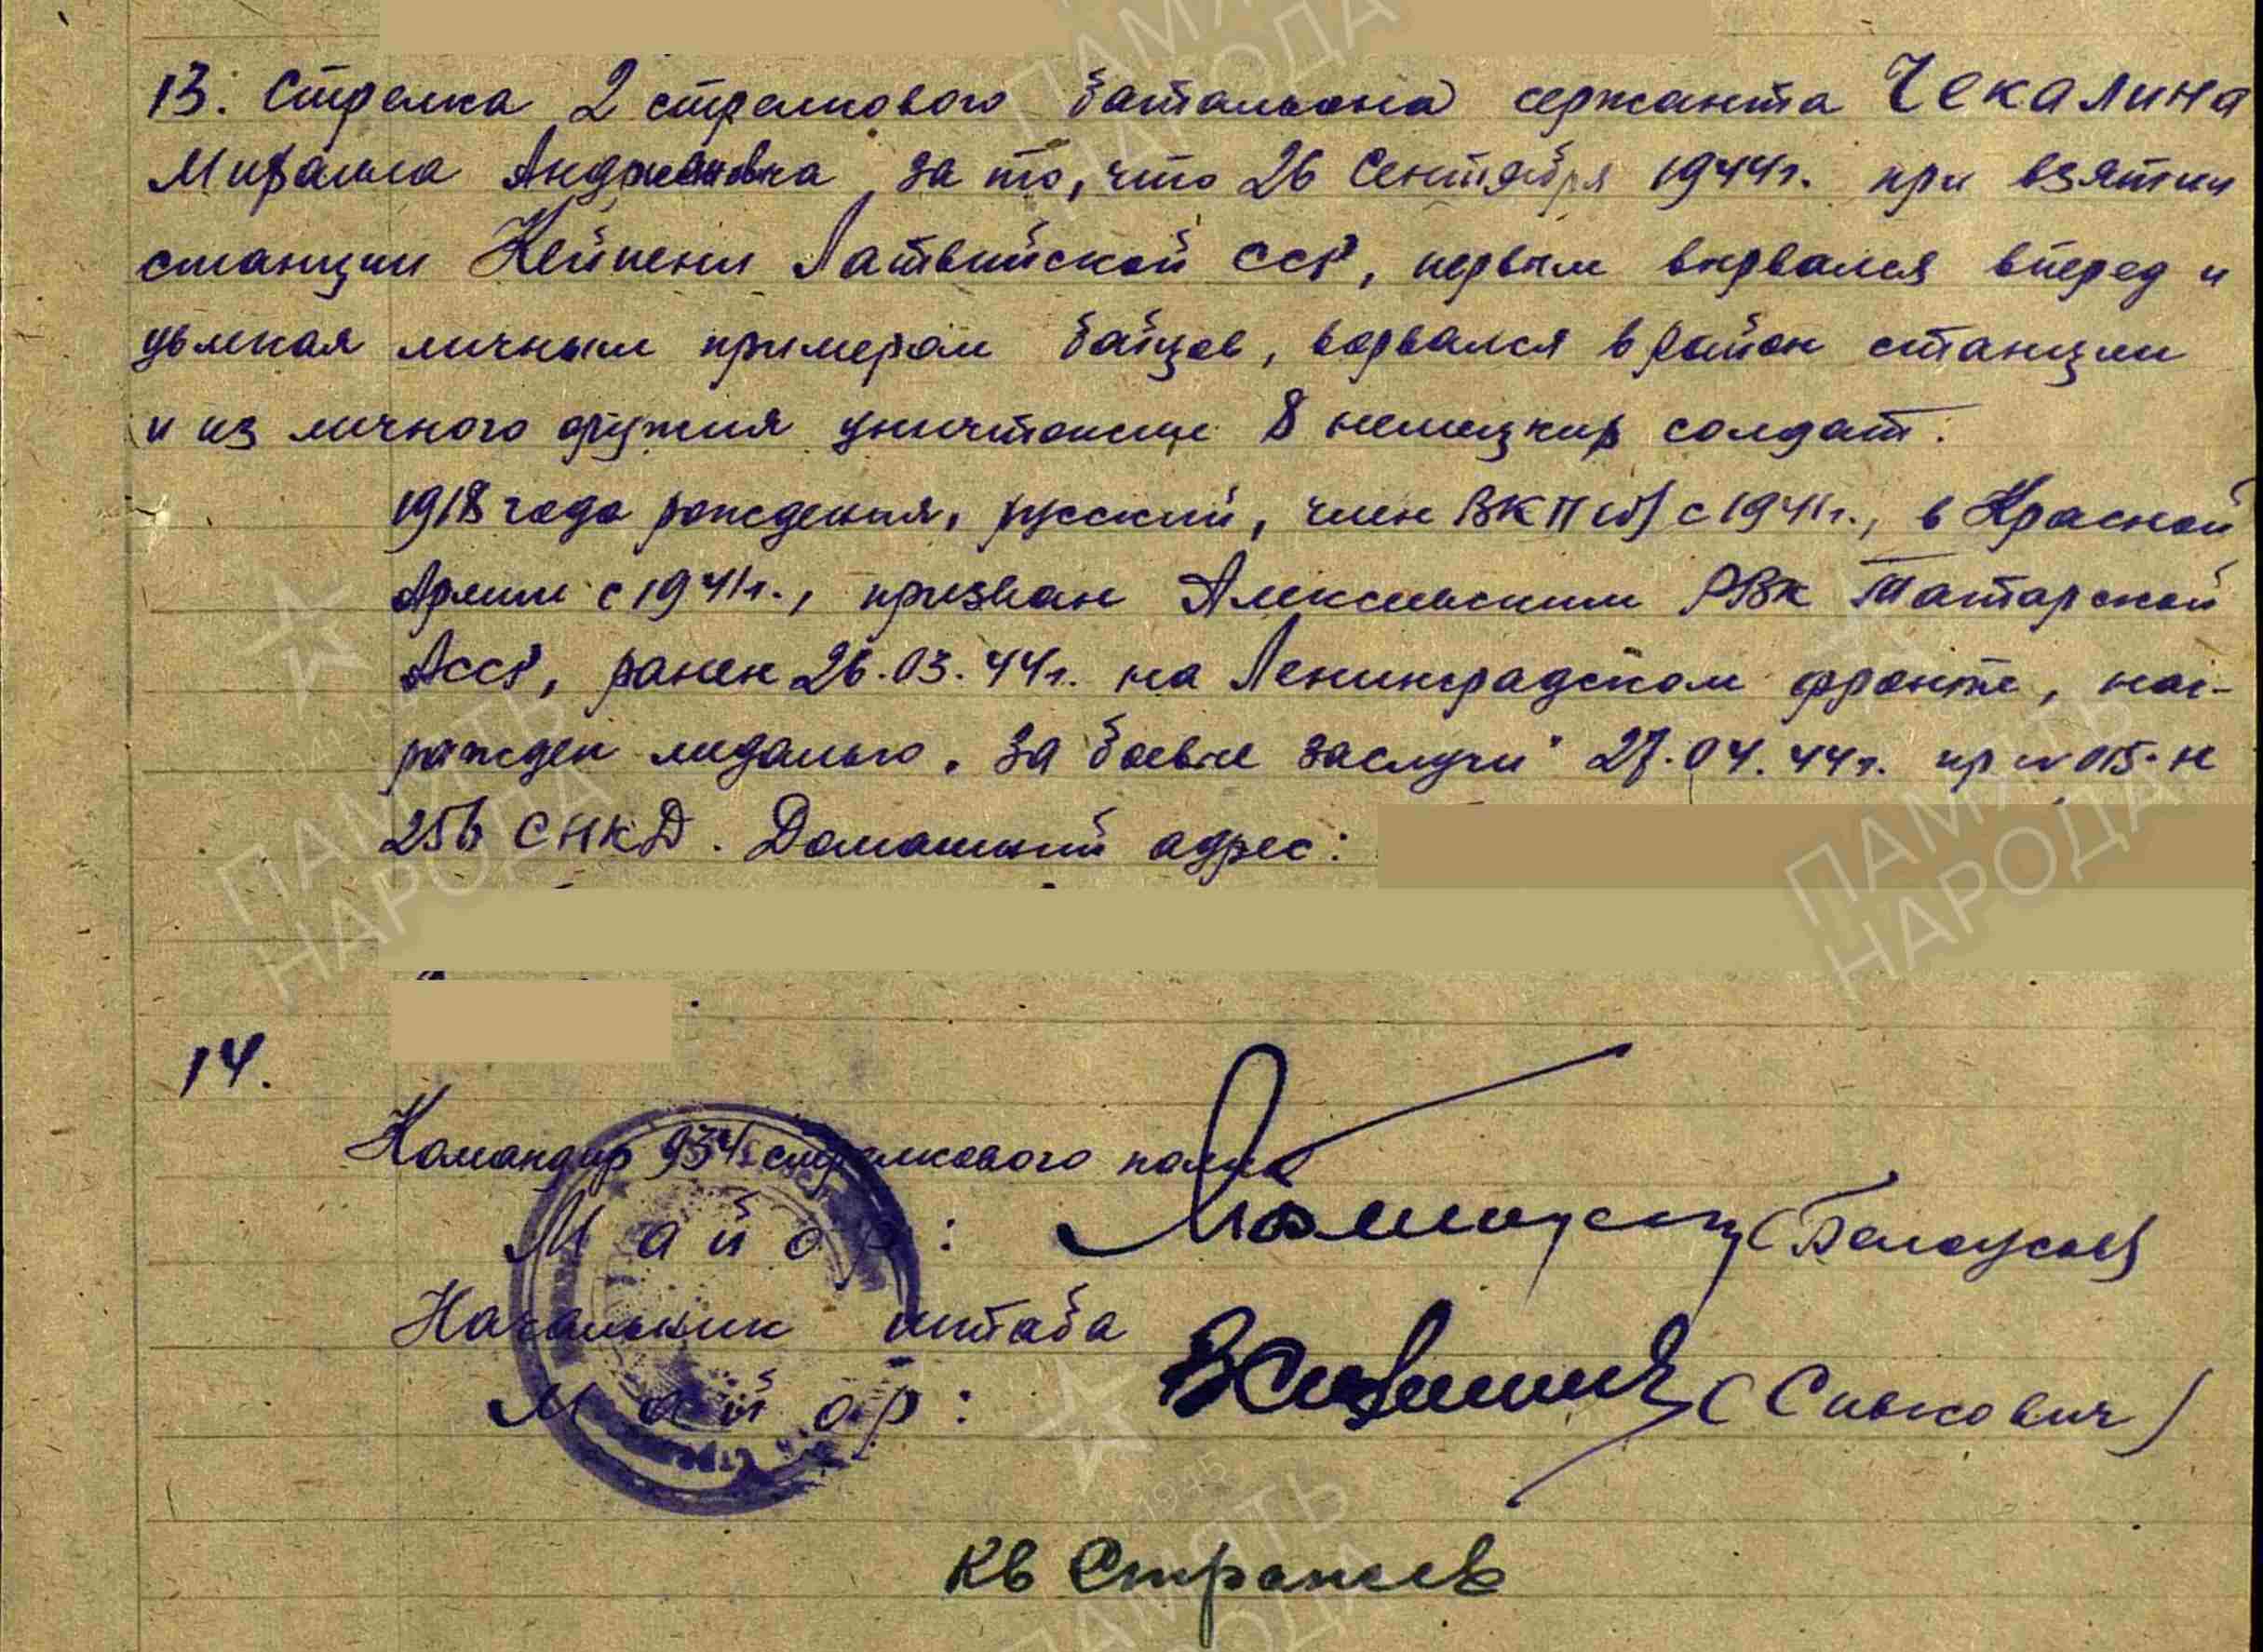 13. Стрелка 2 стрелкового батальона сержанта Чекалина
Михаила Андреановича, за то, что 26 Сентября 1944г. при взятии
станции Кейпени Латвийской ССР, первым вырвался вперед и
увлекая личным примером бойцов, ворвался в район станции
и из личного оружия уничтожил 8 немецких солдат.
1918 года рождения, русский, член ВКП(б) с 1941г., в Красной
Армии с 1941г., призван Алексеевским РВК Татарской
АССР, ранен 26.03.44г. на Ленинградском фронте, наг-
ражден медалью "За боевые заслуги" 27.04.44г. пр № 015-н
256 СНКД. Домашний адрес:
14.
Командир 934 стрелкового полка
Майор: (Белоусов)
Начальник штаба
Майор: (Сивкович)
Кв
ПАМЯТЬ
НАРОДА